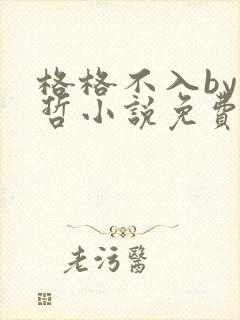 格格不入by
哲小說免費
老污醫